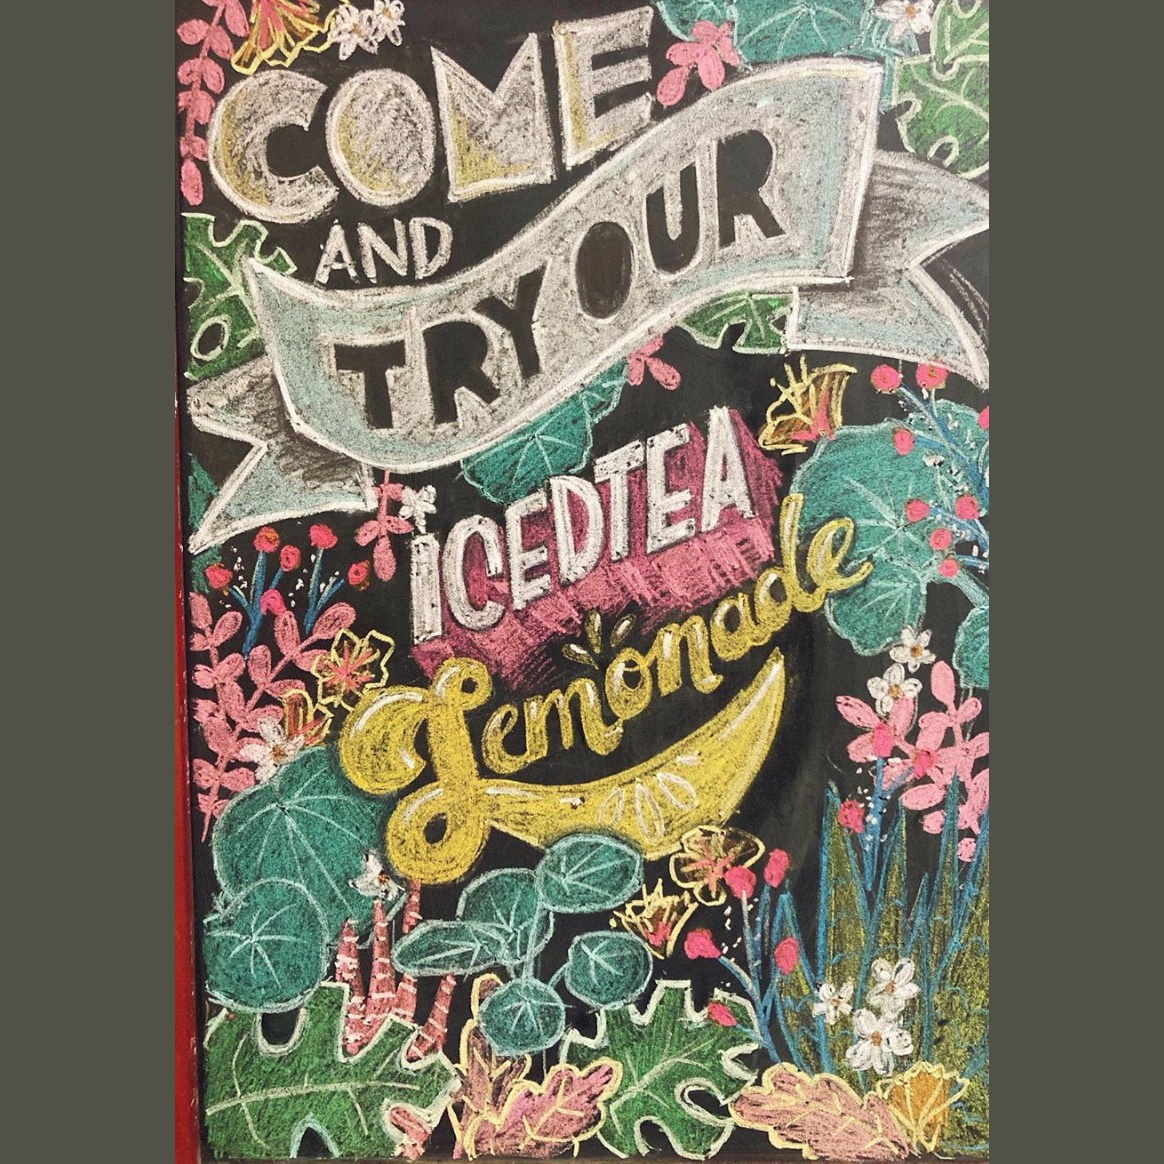 COME
AND
TRY OUR
iCEDTEA
Lemonade